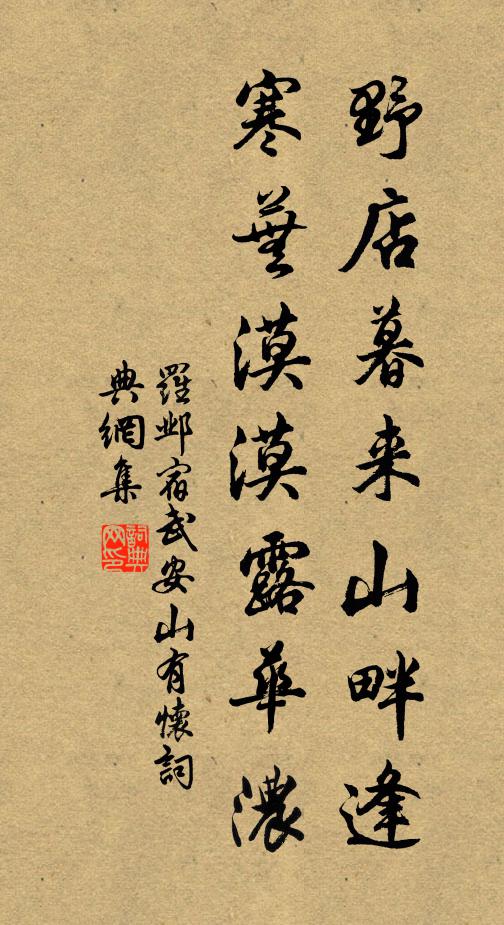 野店暮来山畔逢
寒蕪漠漠露華濃
羅邺宿武安山有懷詞
典網集
詞典
网印